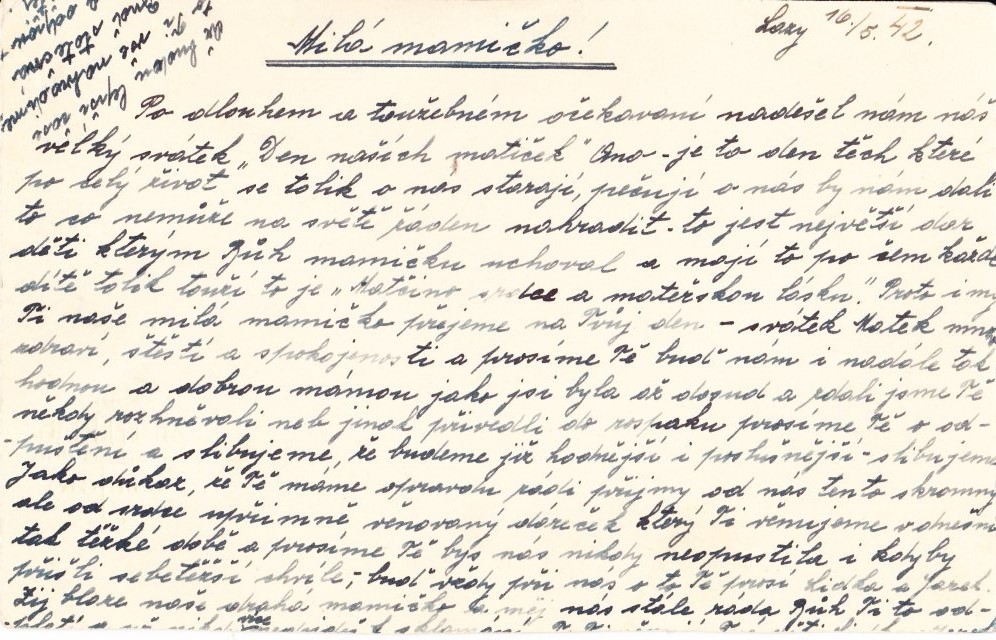 Lazy 16./5. 42.
Milá mamičko!
Po dlouhem a toužebném očekavaní nadešel nám náš
vělký svátek „Den našich matiček" Ano - je to den těch které
po celý život se tolik o nas starají, pečují o nás by nám dali
to co nemůže na světě žáden nahradit - to jest největší dar
děti kterým Bůh mamičku uchoval a mají to po čem každé
dítě tolik touží to je „Matčino srdce a mateřskou lásku." Proto i my
Ti naše milá mamičko přejeme na Tvůj den - svátek Matek mnoho
zdraví, štěstí a spokojenosti a prosíme Tě buď nám i nadále tak
hodnou a dobrou mámou jako jsi byla až dosud a zdali jsme Tě
někdy rozhněvali neb jinak přivedli do rospaku prosíme Tě o od-
-puštění a slibujeme, že budeme již hodnější i poslušnější - slibujeme
Jako důkaz, že Tě máme opravdu radi přijmy od nas tento skromny
ale od srdce upřimně věnovaný dáreček který Ti věnujeme v dnešní
tak těžké době a prosíme Tě bys nás nikdy neopustila i kdyby
přišli sebetěžší chvíle, - buď vždy při nás o to Tě prosí Lidka a Jarek.
Žij blaze naše drahá mamičko a měj nás stále ráda Bůh Ti to od-
více